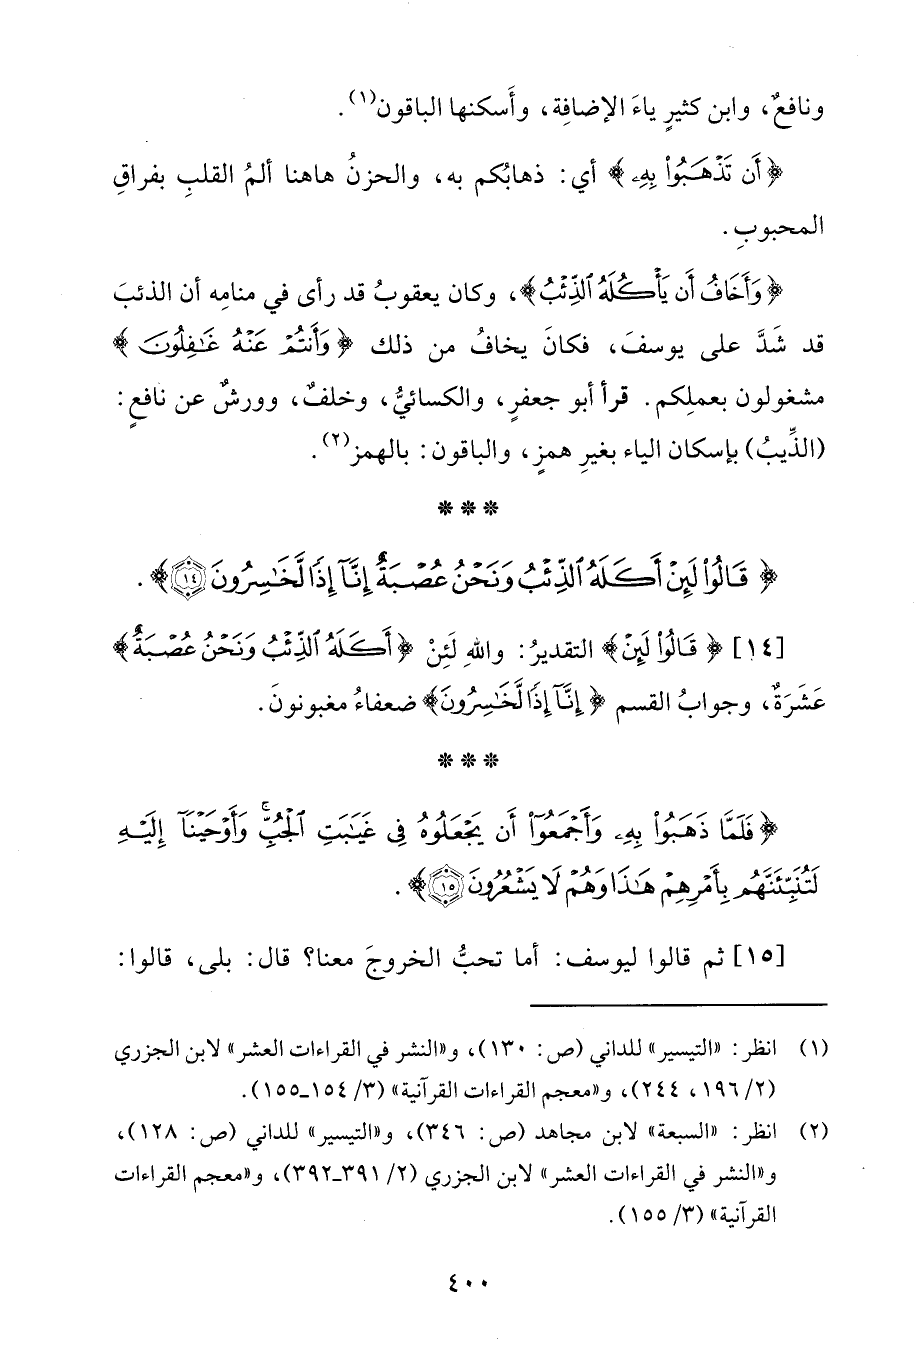 ونافعٌ، وابن كثيرٍ ياءَ الإضافِة، وأَسكنها الباقون(١).
﴿أَن تَذْهَبُوا۟ بِهِۦ﴾ أي: ذهابُكم به، والحزنُ هاهنا ألمُ القلبِ بفراقِ
المحبوبِ.
﴿وَأَخَافُ أَن يَأْكُلَهُ ٱلذِّئْبُ﴾، وكان يعقوبُ قد رأى في منامِه أن الذئبَ
قد شَدَّ على يوسفَ، فكانَ يخافُ من ذلك ﴿وَأَنتُمْ عَنْهُ غَٰفِلُونَ﴾
مشغولون بعملِكم. قرأ أبو جعفرٍ، والكسائيُّ، وخلفٌ، وورشٌ عن نافعٍ:
(الذِّيبُ) بإسكان الياء بغيرِ همزٍ، والباقون: بالهمز(٢).
***
﴿قَالُوا۟ لَئِنْ أَكَلَهُ ٱلذِّئْبُ وَنَحْنُ عُصْبَةٌ إِنَّآ إِذًا لَّخَٰسِرُونَ ١٤﴾.
[١٤] ﴿قَالُوا۟ لَئِنْ﴾ التقديرُ: واللهِ لَئِنْ ﴿أَكَلَهُ ٱلذِّئْبُ وَنَحْنُ عُصْبَةٌ﴾
عَشَرَةٌ، وجوابُ القسم ﴿إِنَّآ إِذًا لَّخَٰسِرُونَ﴾ ضعفاءُ مغبونونَ.
***
﴿فَلَمَّا ذَهَبُوا۟ بِهِۦ وَأَجْمَعُوٓا۟ أَن يَجْعَلُوهُ فِى غَيَٰبَتِ ٱلْجُبِّ ۚ وَأَوْحَيْنَآ إِلَيْهِ
لَتُنَبِّئَنَّهُم بِأَمْرِهِمْ هَٰذَا وَهُمْ لَا يَشْعُرُونَ ١٥﴾.
[١٥] ثم قالوا ليوسف: أما تحبُّ الخروجَ معنا؟ قال: بلى، قالوا:
(١) انظر: «التيسير» للداني (ص: ١٣٠)، و«النشر في القراءات العشر» لابن الجزري
(٢/ ١٩٦، ٢٤٤)، و«معجم القراءات القرآنية» (٣/ ١٥٤ـ١٥٥).
(٢) انظر: «السبعة» لابن مجاهد (ص: ٣٤٦)، و«التيسير» للداني (ص: ١٢٨)،
و«النشر في القراءات العشر» لابن الجزري (٢/ ٣٩١ـ٣٩٢)، و«معجم القراءات
القرآنية» (٣/ ١٥٥).
٤٠٠